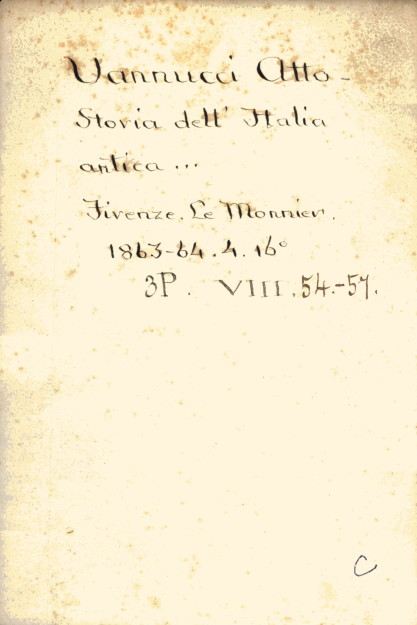 Vannucci Atto -
Storia dell' Italia
antica ...
Firenze. Le Monnier.
1863-64. 4. 16°
3P. VIII. 54.-57.
C